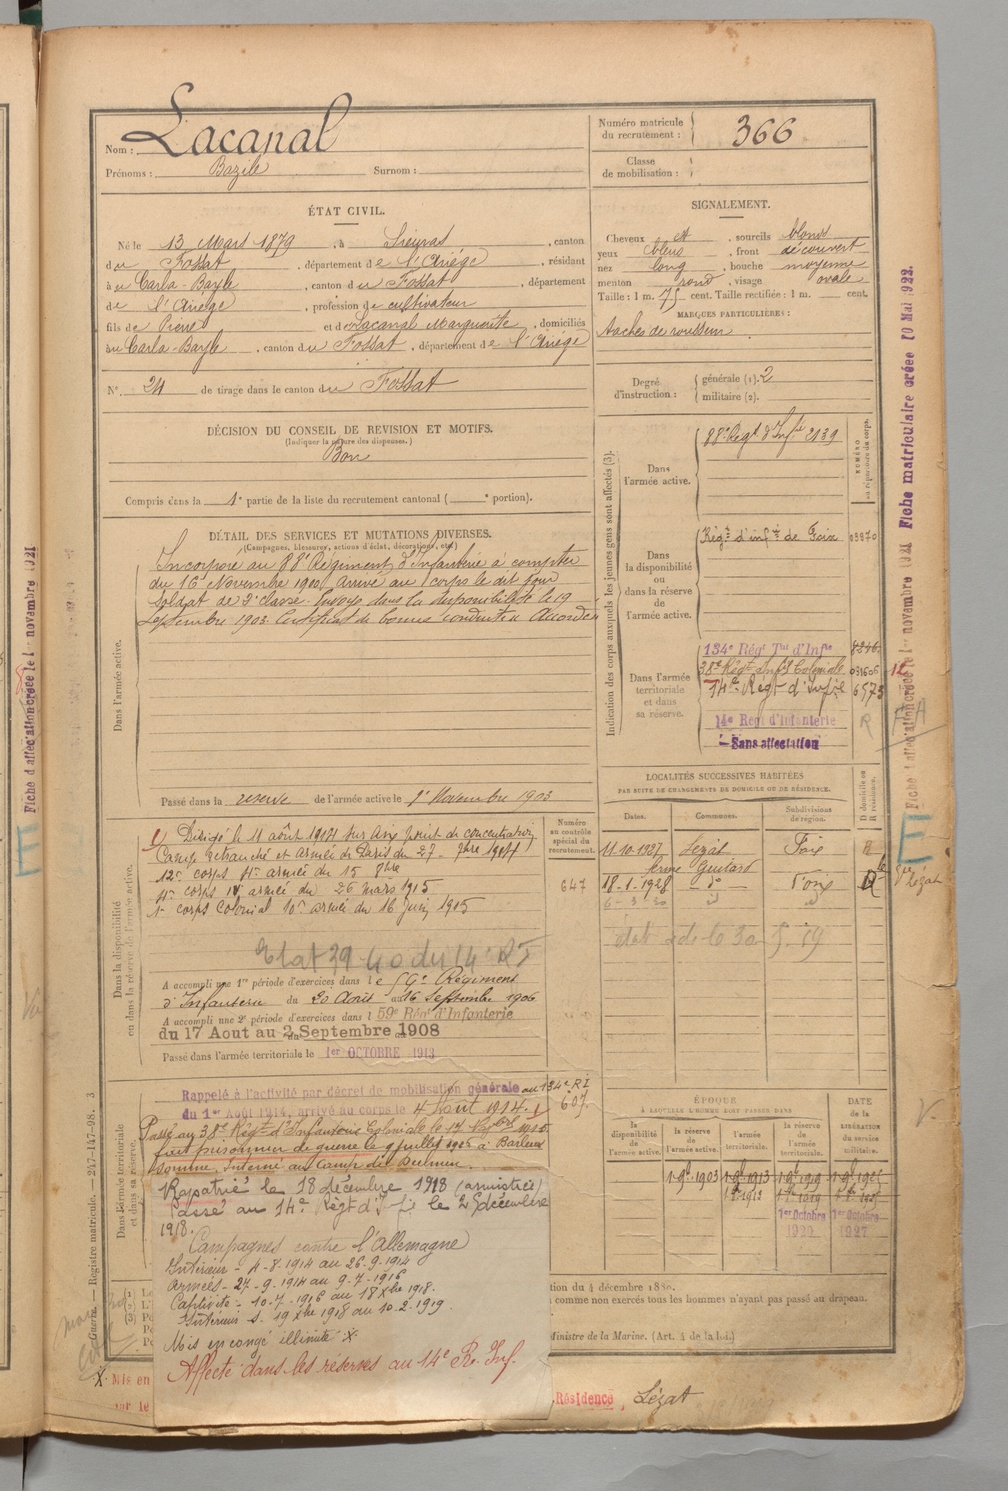 Nom : Lacanal
Prénoms : Bazile Surnom :
Numéro matricule du recrutement : 366
Classe de mobilisation :
ÉTAT CIVIL.
Né le 13 Mars 1879, à Sieuras, canton
du Fossat, département de l'Ariège, résidant
à Carla-Bayle, canton du Fossat, département
de l'Ariège, profession de cultivateur
fils de Pierre et de Lacanal Marguerite, domiciliés
au Carla-Bayle, canton du Fossat, département de l'Ariège
N° 24 de tirage dans le canton du Fossat
SIGNALEMENT.
Cheveux et, sourcils blonds
yeux bleus, front découvert
nez long, bouche moyenne
menton rond, visage ovale
Taille : 1 m. 75 cent. Taille rectifiée : 1 m. cent.
MARQUES PARTICULIÈRES :
taches de rousseur
Degré d'instruction : générale (1). 2
militaire (2).
DÉCISION DU CONSEIL DE REVISION ET MOTIFS.
(Indiquer la nature des dispenses.)
Bon
Compris dans la 1e partie de la liste du recrutement cantonal ( e portion).
DÉTAIL DES SERVICES ET MUTATIONS DIVERSES.
(Campagnes, blessures, actions d'éclat, décorations, etc.)
Dans l'armée active.
Incorporé au 88e Régiment d'Infanterie à compter
du 16 Novembre 1900 Arrivé au corps le dit jour
Soldat de 2e classe. Envoyé dans la disponibilité le 19
Septembre 1903 Certificat de bonne conduite « Accordé »
Passé dans la réserve de l'armée active le 1er Novembre 1903
Dans la disponibilité ou dans la réserve de l'armée active.
Numéro au contrôle spécial du recrutement.
647
Dirigé le 11 août 1914 sur Aix point de concentration
Camp retranché et armée de Paris du 27 7bre 1914
12e corps 4e armée du 15 8bre
4e corps IV armée du 26 mars 1915
1er corps Colonial 10e armée du 16 juin 1915
Etat 39-40 du 14e RI
A accompli une 1re période d'exercices dans le 59e Régiment
d'Infanterie du 20 Août au 16 Septembre 1906
A accompli une 2e période d'exercices dans l 59e Rég d'Infanterie
du 17 Aout au 2 Septembre 1908
Passé dans l'armée territoriale le 1er OCTOBRE 1913
Dans l'armée territoriale et dans sa réserve.
Rappelé à l'activité par décret de mobilisation générale au 134e RI
du 1er Août 1914, arrivé au corps le 4 Août 1914. 607
Passé au 38e Régt d'Infanterie Coloniale le
fait prisonnier de guerre le 9 juillet 1916 à Barleux
Somme, Interné au Camp de Dulmen.
Rapatrié le 18 décembre 1918 (armistice)
Passé au 14e Régt d'Inf ie le 25 décembre
1918.
Campagnes contre l'Allemagne
Intérieur - 4-8-1914 au 26-9-1914
Armées - 27-9-1914 au 9-7-1916
Captivité - 10-7-1916 au 18 Xbre 1918.
Intérieur S. 19 Xbre 1918 au 10-2-1919.
Mis en congé illimité X.
Affecté dans les réserves au 14e R. Inf.
X. Mis en
par le
Indication des corps auxquels les jeunes gens sont affectés (3).
NUMÉRO au répertoire du corps.
Dans l'armée active. 88e Régt d'Infie 2139
Dans la disponibilité ou dans la réserve de l'armée active. Régt d'infie de Foix 03870
Dans l'armée territoriale et dans sa réserve.
134e Régt Tal d'Infie 8246
38e Régt Inf Coloniale 031606
14e Régt d'Infie 6573
14e Régt d'Infanterie R
Sans affectation
LOCALITÉS SUCCESSIVES HABITÉES
PAR SUITE DE CHANGEMENTS DE DOMICILE OU DE RÉSIDENCE.
Dates. Communes. Subdivisions de région. D domicile ou R résidence.
11-10-1927 Lézat Foix R
ferme Guitard
18-1-1928 do Foix
6-3-30
ÉPOQUE
À LAQUELLE L'HOMME DOIT PASSER DANS
la disponibilité de l'armée active. la réserve de l'armée active. l'armée territoriale. la réserve de l'armée territoriale. DATE de la LIBÉRATION du service militaire.
1-9bre 1903 1-9bre 1913 1-9bre 1919 1-9bre 1925
1er Octobre 1920 1er Octobre 1927
tion du 4 décembre 1830.
comme non exercés tous les hommes n'ayant pas passé au drapeau.
Ministre de la Marine. (Art. 4 de la loi.)
Résidence, Lézat
Guerre. — Registre matricule. — 247-147-98. 3
Fiche d'affectation créée le 1er novembre 1921
Fiche d'affectation créée le 1er novembre 1921 Fiche matriculaire créée 10 Mai 1922.